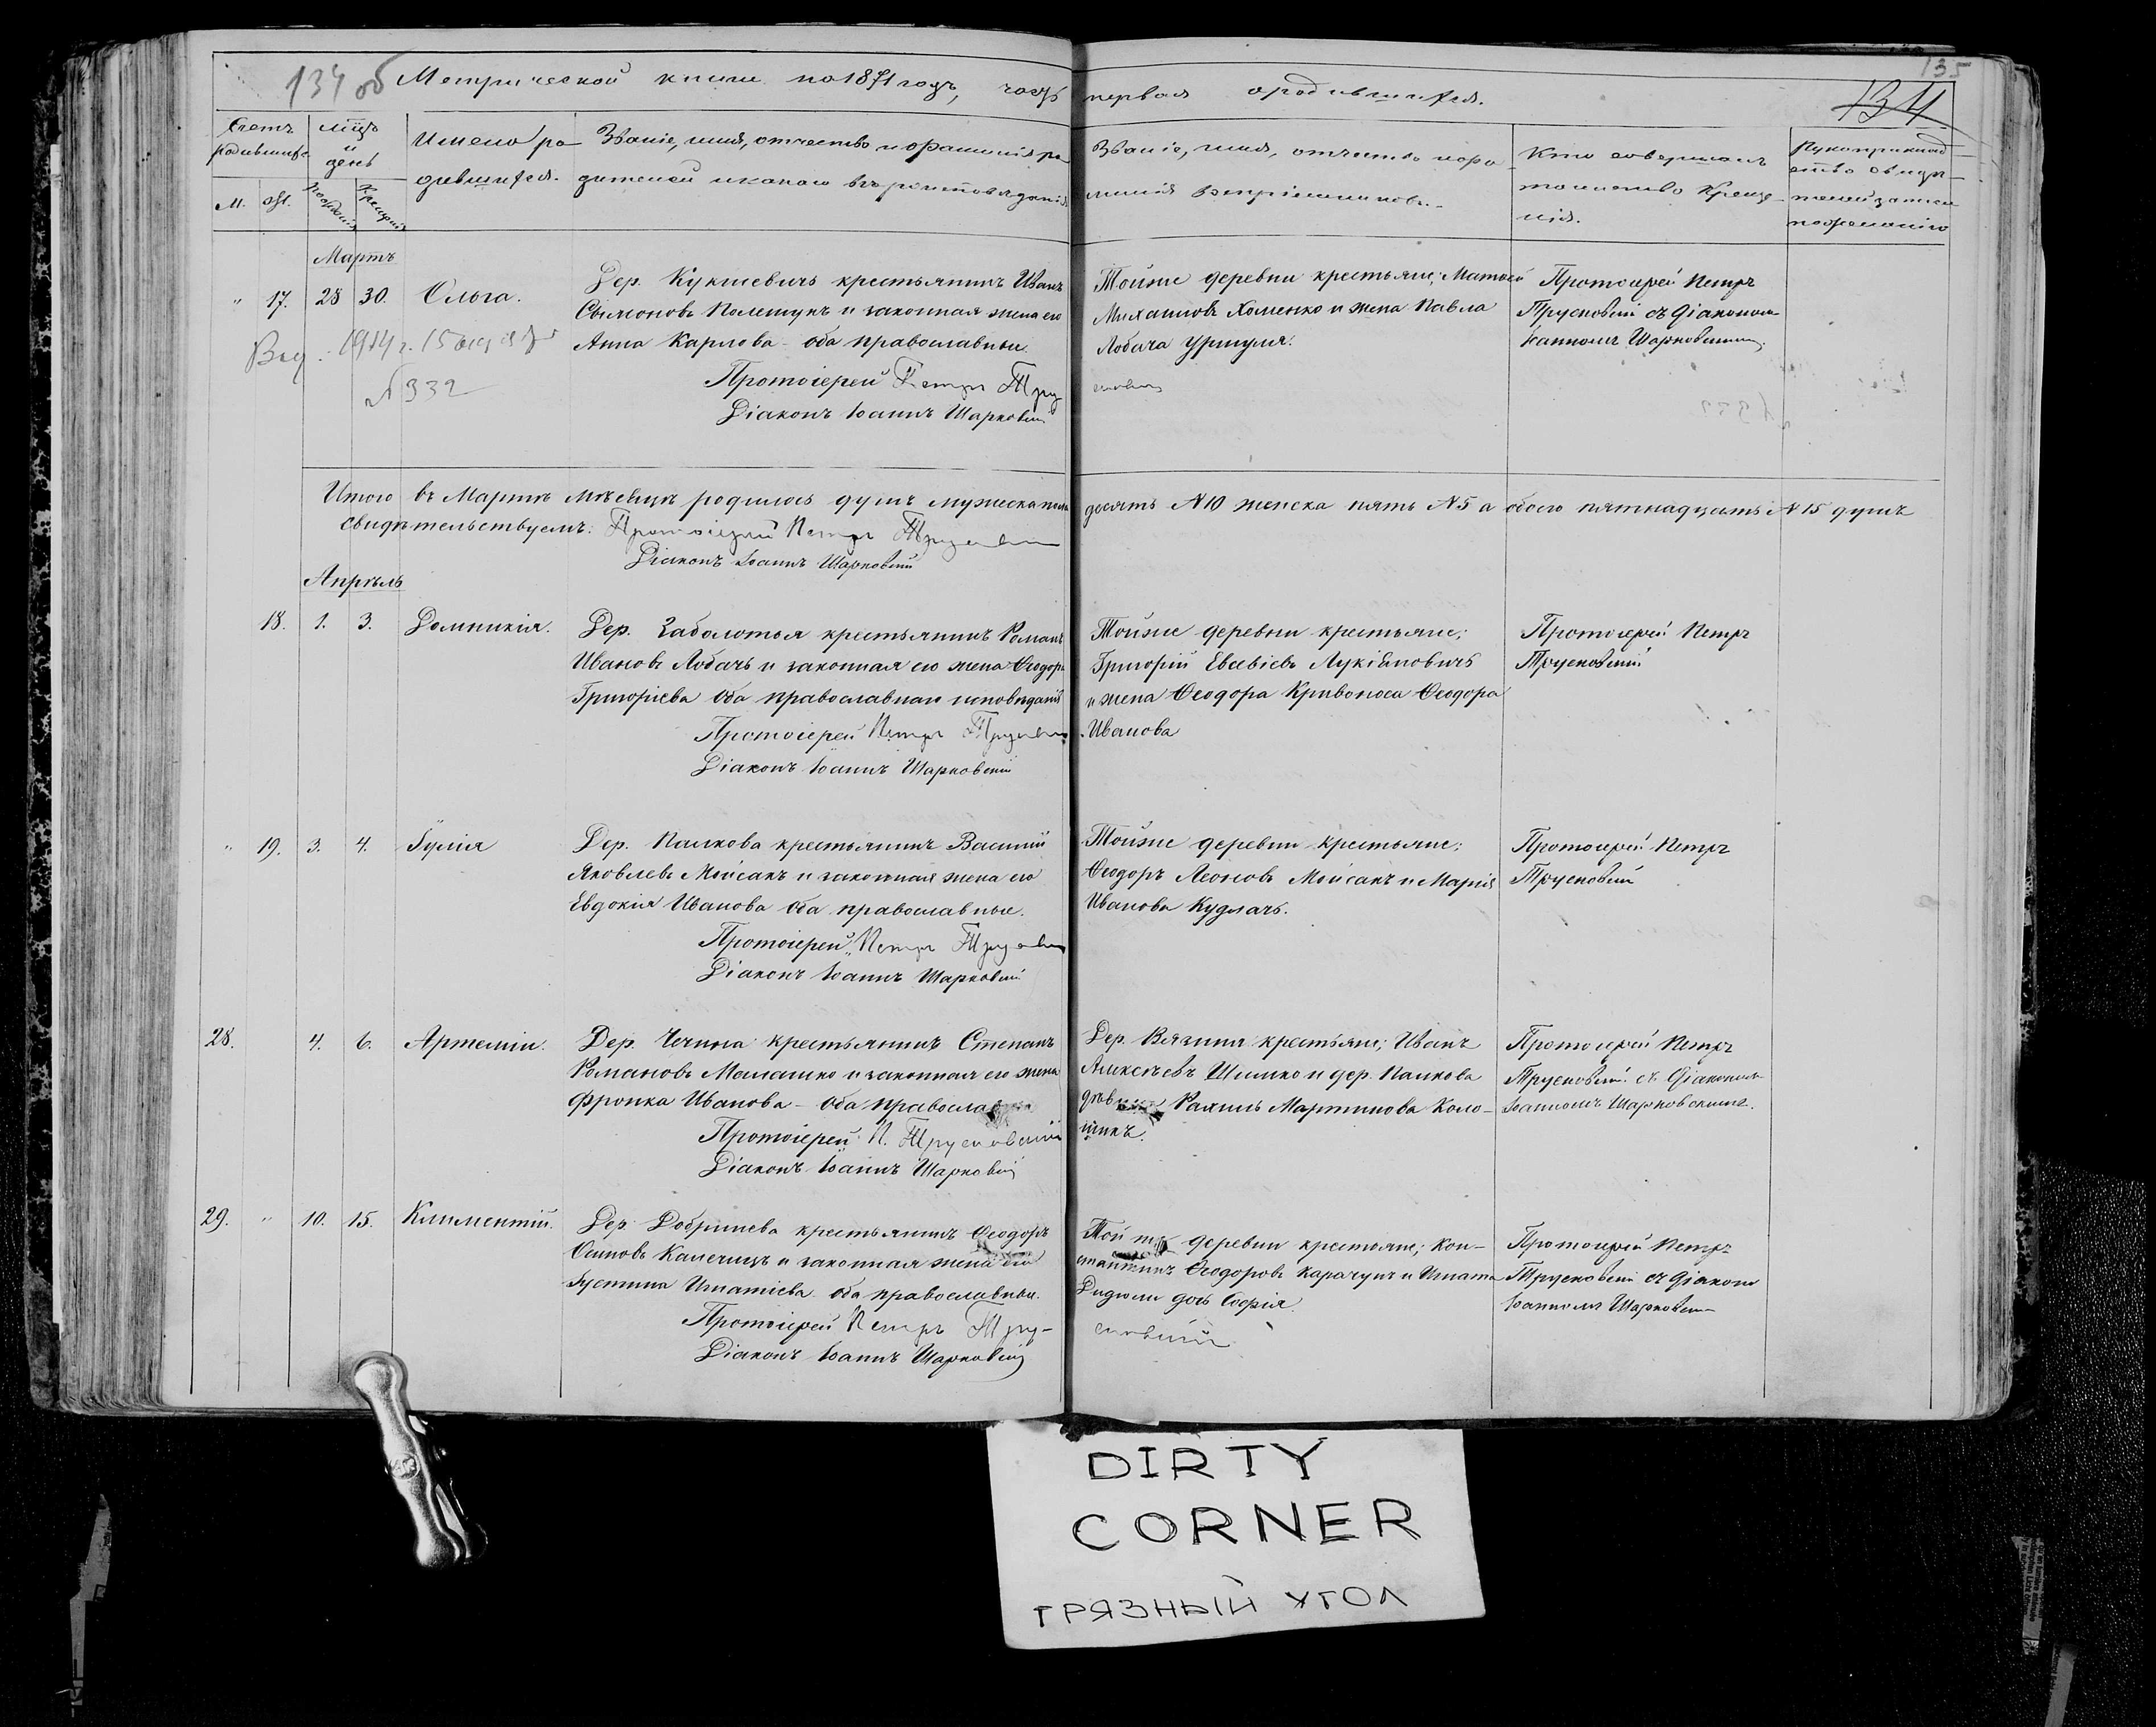 134 об Метрической книги на 1871 годъ, часть первая о родившихся.
135
134
Счетъ родившихся
М. Ж.
Мѣсяцъ и день
Рожденія Крещенія
Имена ро-
дившихся.
Званіе, имя, отчество и фамилія ро-
дителей и какого вѣроисповѣданія
Званіе, имя, отчество и фа-
милія воспріемниковъ.
Кто совершалъ
таинство Креще-
нія.
Рукоприклад-
ство свидѣ-
телей записи
по желанію
Мартъ
" 17. 28 30. Ольга.
Дер. Кукшевичъ крестьянинъ Иванъ
Сымоновъ Полетунъ и законная жена его
Анна Карлова - оба православны.
Протоіерей Петръ Тру
Діаконъ Іоаннъ Шарковскій
Тойже деревни крестьяне; Матвѣй
Михаиловъ Хоменко и жена Павла
Лобача Уршуля.
Протоіерей Петръ
Трусковскій съ діакономъ
Іоанномъ Шарковскимъ.
Выд. 1914 г. 15
№ 332
Итого въ Мартѣ мѣсяцѣ родилось душъ мужеска пола десять № 10 женска пять № 5 а обоего пятнадцать № 15 душъ
свидѣтельствуемъ: Протоіерей Петръ Трусковскій
Діаконъ Іоаннъ Шарковскій
Апрѣль
18. 1. 3. Домникія.
Дер. Заболотья крестьянинъ Романъ
Ивановъ Лобачъ и законная его жена Ѳеодора
Григоріева оба православнаго исповѣданія
Протоіерей Петръ Трусковскій
Діаконъ Іоаннъ Шарковскій
Тойже деревни крестьяне;
Григорій Евсевіевъ Лукіяновичъ
и жена Ѳеодора Кривоноса Ѳеодора
Иванова
Протоіерей Петръ
Трусковскій
" 19. 3. 4. Іулія
Дер. Палкова крестьянинъ Василій
Яковлевъ Мойсакъ и законная жена его
Евдокія Иванова оба православные.
Протоіерей Петръ Трусковскій
Діаконъ Іоаннъ Шарковскій
Тойже деревни крестьяне;
Ѳеодоръ Леоновъ Мойсакъ и Марія
Иванова Кудлачъ.
Протоіерей Петръ
Трусковскій
28. 4. 6. Артемій.
Дер. Чечина крестьянинъ Степанъ
Романовъ Малашко и законная его жена
Фронка Иванова - оба православны
Протоіерей П. Трусковскій
Діаконъ Іоаннъ Шарковскій
Дер. Вязыня крестьяне; Иванъ
Алексѣевъ Шимко и дер. Палкова
дѣвица Рахиль Мартинова Коло-
шикъ.
Протоіерей Петръ
Трусковскій съ Діакономъ
Іоанномъ Шарковскимъ.
29. " 10. 15. Климентій.
Дер. Добринева крестьянинъ Ѳеодоръ
Осиповъ Калечицъ и законная жена его
Іустина Игнатіева оба православны.
Протоіерей Петръ Тру-
Діаконъ Іоаннъ Шарковскій
Той же деревни крестьяне; Кон-
стантинъ Ѳеодоровъ Карачунъ и Игната
Дидюли дочь Софія.
сковскій
Протоіерей Петръ
Трусковскій съ діакономъ
Іоанномъ Шарковскимъ
DIRTY
CORNER
ГРЯЗНЫЙ УГОЛ